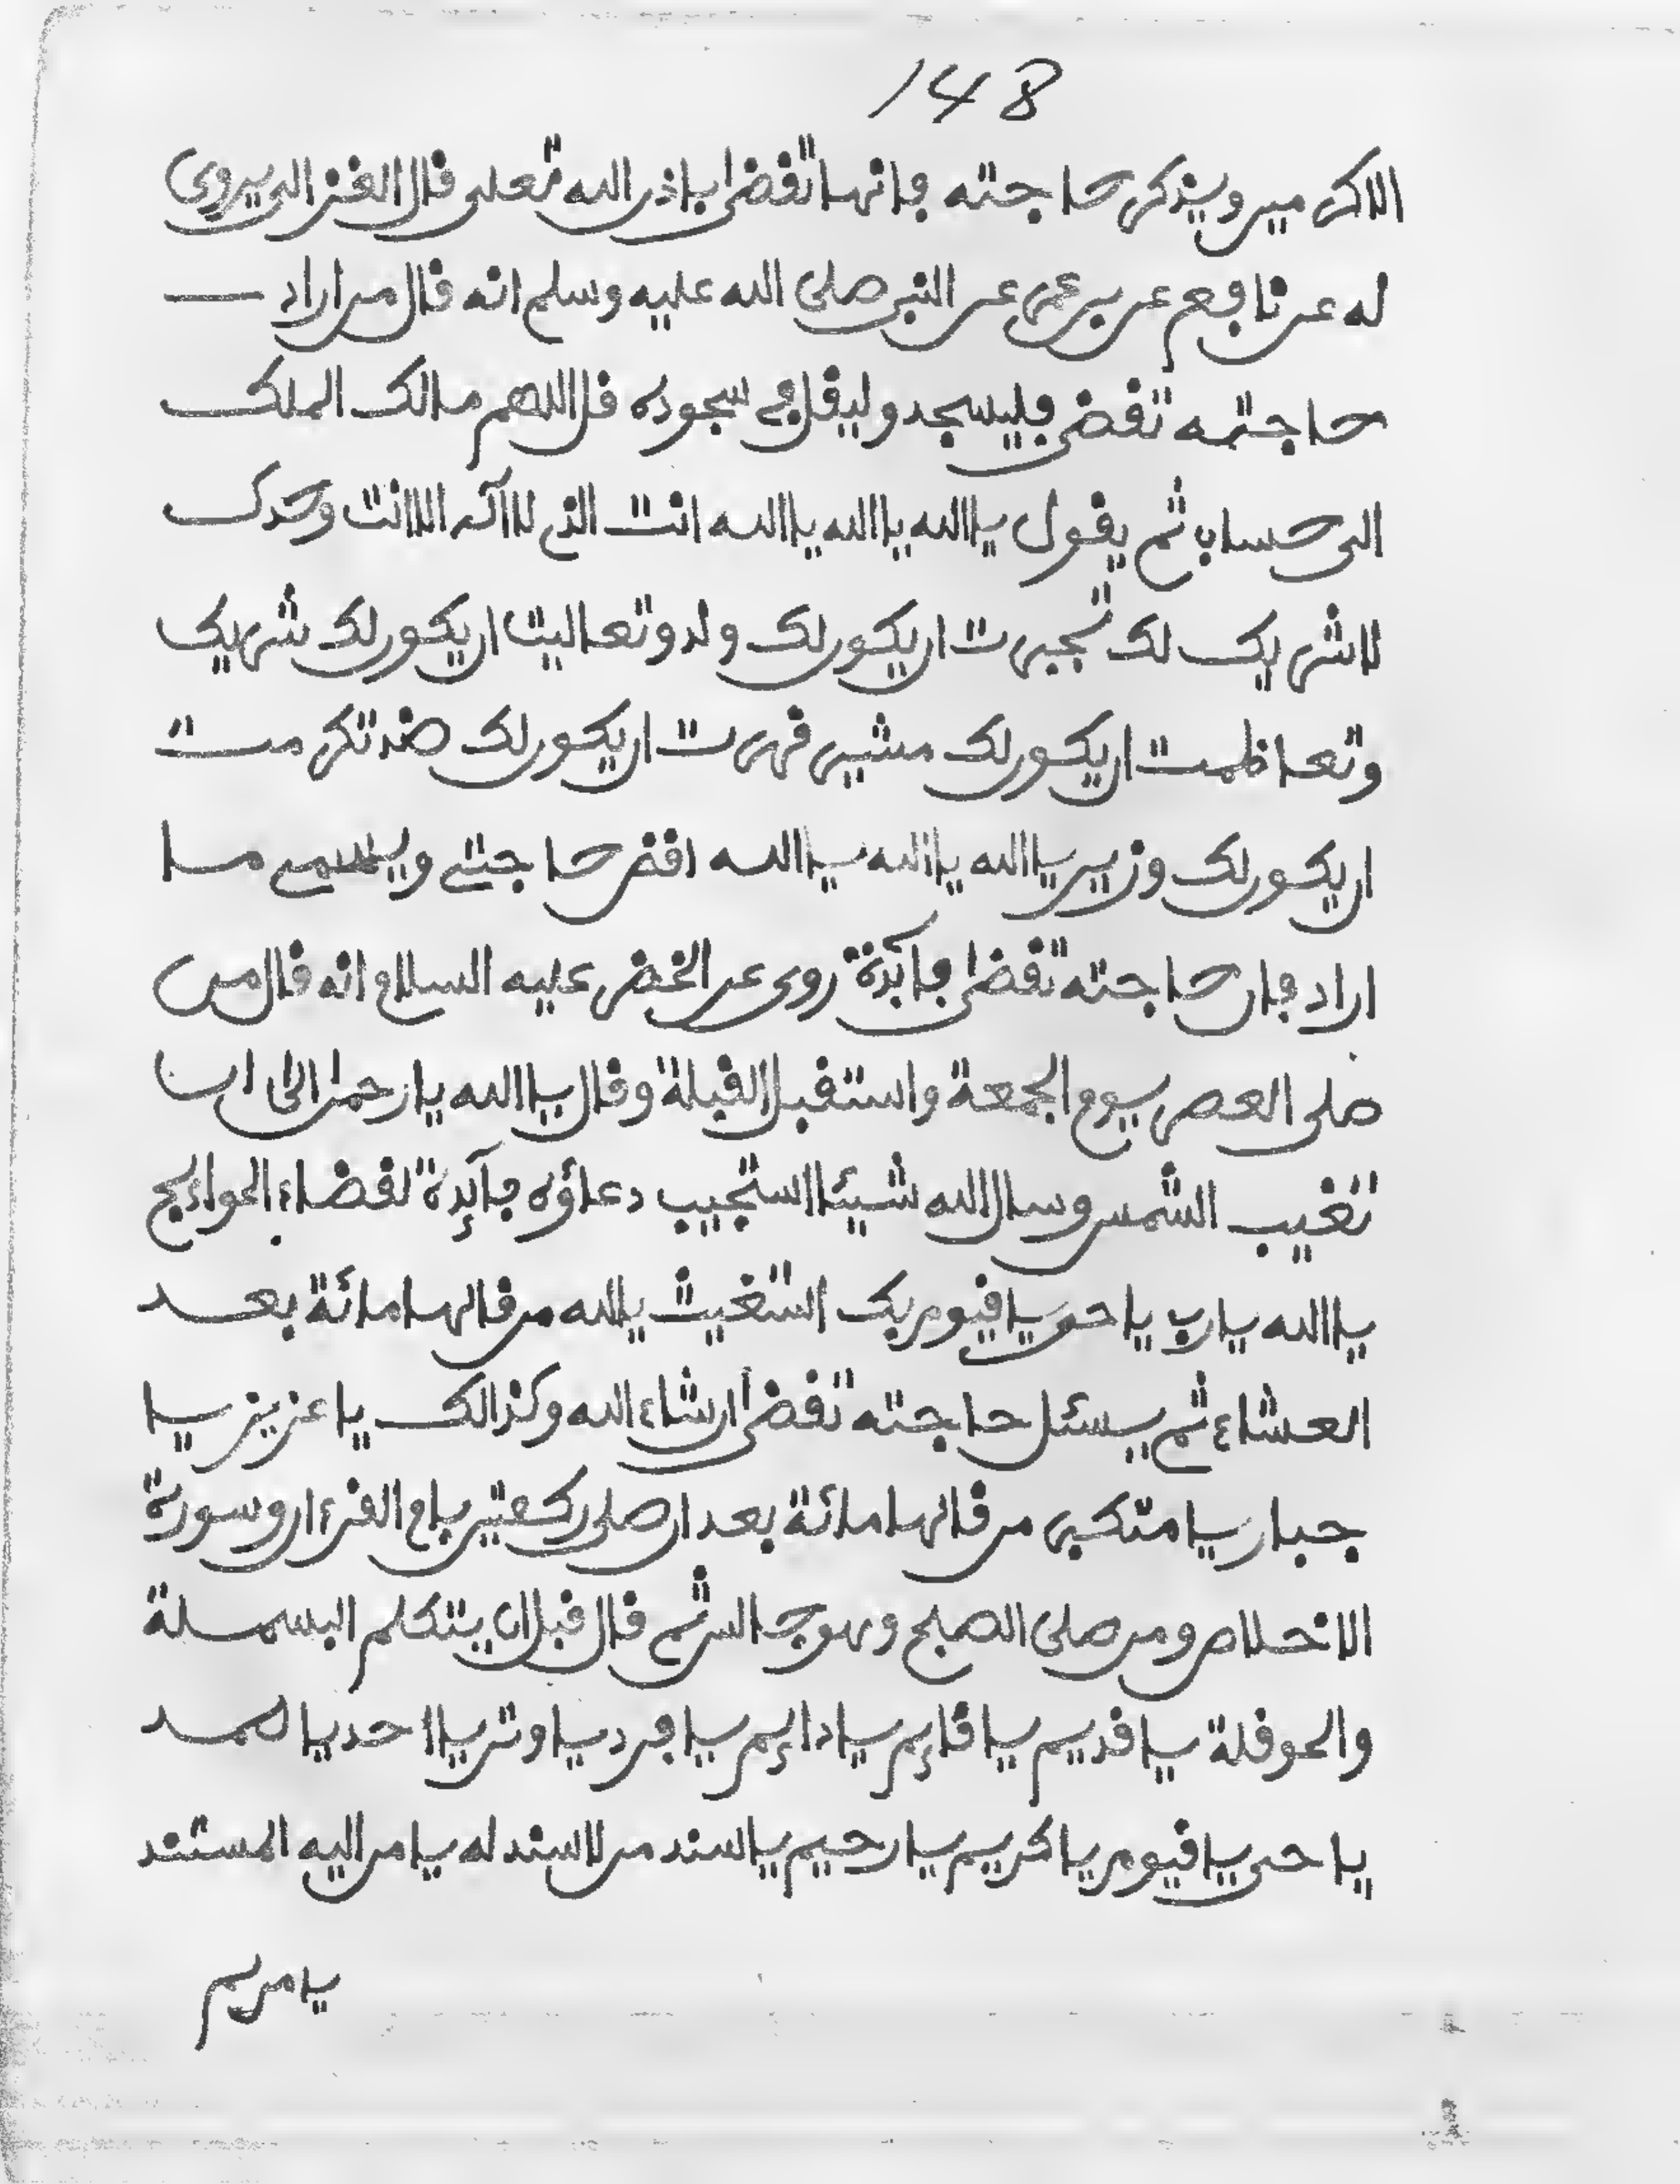 148
الاكرمين ويذكر حاجته فانها تقضى باذن الله تعلى قال الغزالي يروى
له عن نافع عن بن عمر عن النبي صلى الله عليه وسلم انه قال من اراد
حاجته تقضى فليسجد وليقل في سجوده قل اللهم مالك الملك
الى حساب ثم يقول يا الله يا الله يا الله انت الذي لا اله الا انت وحدك
لا شريك لك تجبرت ان يكون لك ولد وتعاليت ان يكون لك شريك
وتعاظمت ان يكون لك مشير قهرت ان يكون لك ضد تكرمت
ان يكون لك وزير يا الله يا الله يا الله اقض حاجتي ويسمي ما
اراد فان حاجته تقضى فآئدة روى عن الخضر عليه السلام انه قال من
صلى العصر يوم الجمعة واستقبل القبلة وقال يا الله يا رحمن الى ان
تغيب الشمس وسال الله شيئا استجيب دعاؤه فآئدة لقضاء الحوائج
يا الله يا رب يا حي يا قيوم بك استغيث يا الله من قالها مائة بعد
العشاء ثم يسئل حاجته تقضى ان شاء الله وكذالك يا عزيز يا
جبار يا متكبر من قالها مائة بعد ان صلى ركعتين بام القرءان وسورة
الاخلاص ومن صلى الصبح وهو جالس ثم قال قبل ان يتكلم البسملة
والحوقلة يا قديم يا قائم يا دائم يا فرد يا وتر يا احد يا صمد
يا حي يا قيوم يا كريم يا رحيم يا سند من لا سند له يا من اليه المستند
يا من لم